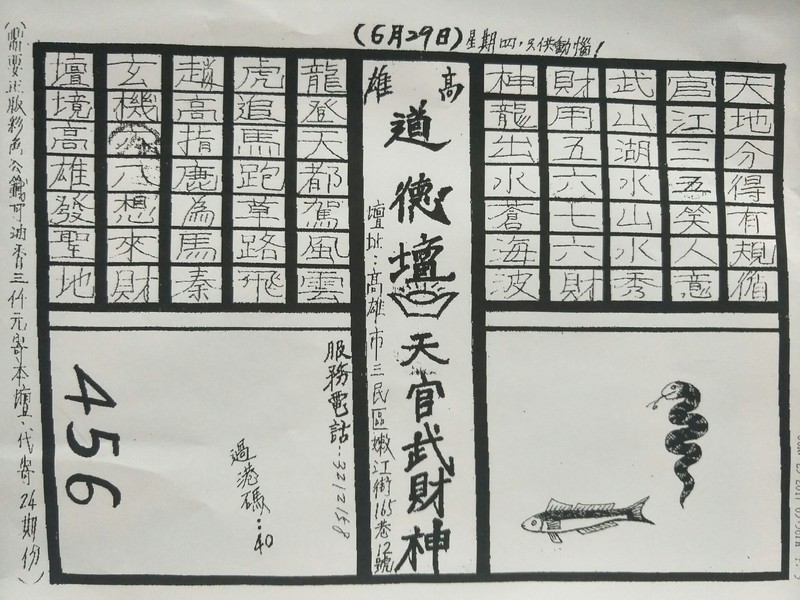 (6月29日)星期四,只供動惱!
天地分得有規循
官江三五笑人意
武山湖水山水秀
財用五六七六財
神龍出水蒼海波
高雄
道德壇 天官武財神
壇址:高雄市三民區嫩江街165巷12號
龍登天都駕風雲
虎追馬跑草路飛
趙高指鹿為馬秦
玄機八想來財
壇境高雄發聖地
服務電話:3212148
過港碼:40
456
(需要正版彩色公籤可油香三仟元寄本壇、代寄24期份)